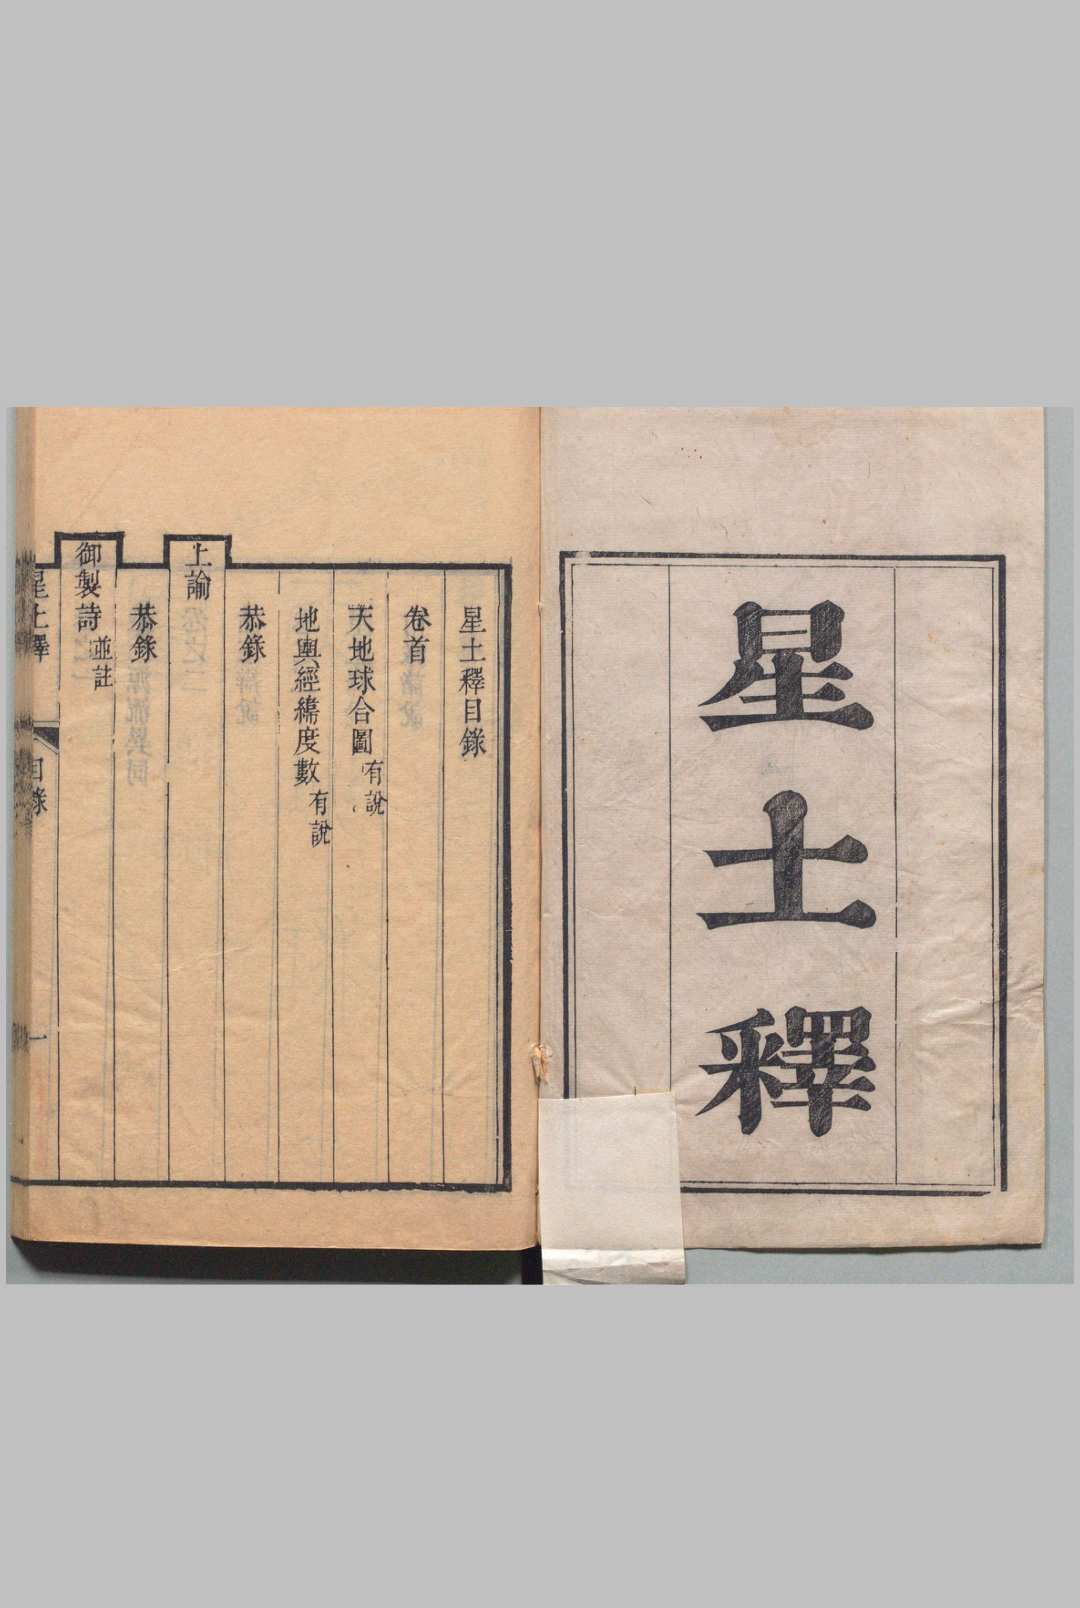 星土釋
星土釋目錄
卷首
天地球合圖有說
地輿經緯度數有說
恭錄
上諭
恭錄
御製詩並註
星土釋 目錄 一